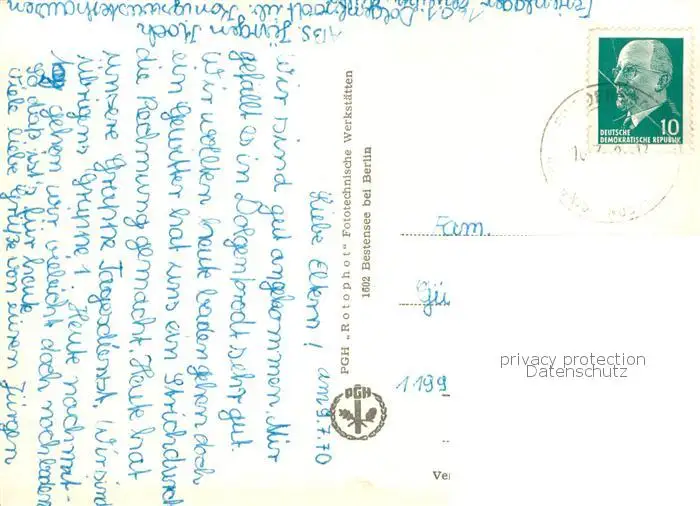 ABS. Jürgen Koch
Ferienlager
Dolgenbrodt üb. Königswusterhausen
Liebe Eltern! am 9.7.70
Wir sind gut angekommen. Mir
gefällt es in Dolgenbrodt sehr gut.
Wir wollten heute baden gehen doch
ein Gewitter hat uns ein Strich durch
die Rechnung gemacht. Heute hat
unsere Gruppe Tagesdienst. Wir sind
übrigens Gruppe 1. Heute nachmit-
tag gehen wir vielleicht doch noch baden
so das ist's für heute
Viele liebe Grüße von euren Jürgen
PGH „Rotophot" Fototechnische Werkstätten
1602 Bestensee bei Berlin
PGH
10
DEUTSCHE
DEMOKRATISCHE REPUBLIK
Fam.
Gün
1199
Ve
privacy protection
Datenschutz